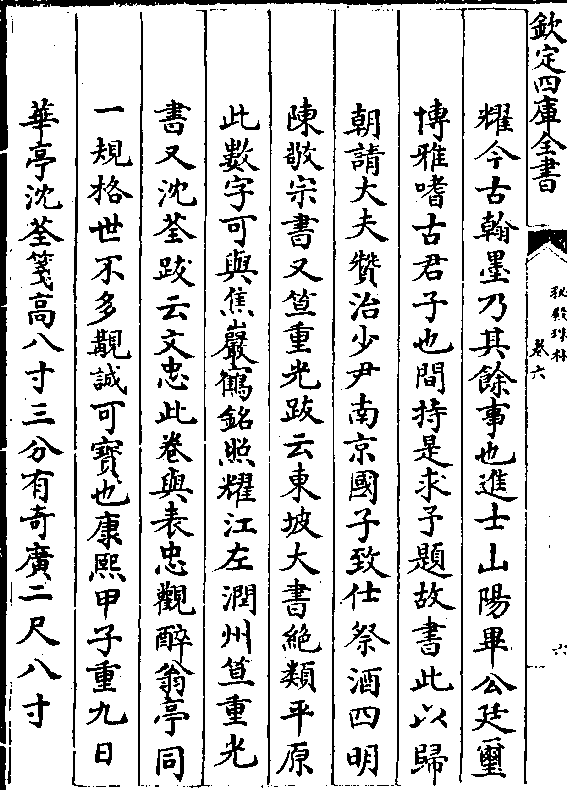 欽定四庫全書
秘殿珠林
卷六
六
耀今古翰墨乃其餘事也進士山陽畢公廷璽
博雅嗜古君子也間持是求予題故書此以歸
朝請大夫贊治少尹南京國子致仕祭酒四明
陳敬宗書又笪重光跋云東坡大書絕類平原
此數字可與焦巖鶴銘照耀江左潤州笪重光
書又沈荃跋云文忠此卷與表忠觀醉翁亭同
一規格世不多覯誠可寳也康熙甲子重九日
華亭沈荃箋高八寸三分有奇廣二尺八寸